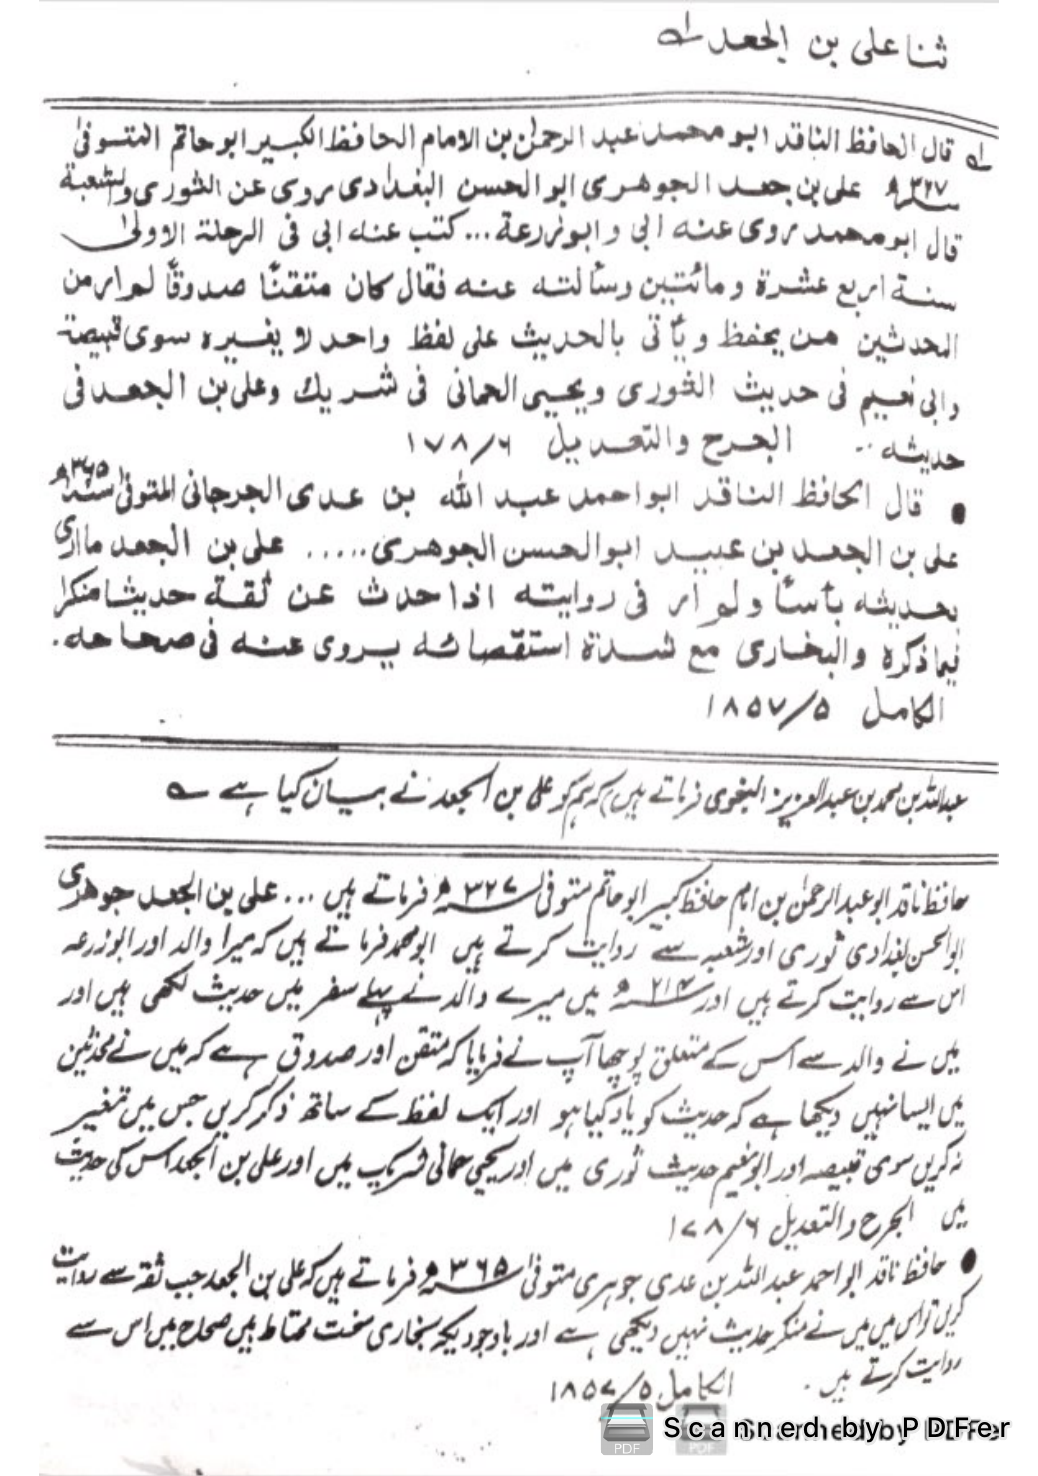 ثنا علی بن الجعد لہ
لہ قال الحافظ الناقد ابو محمد عبد الرحمن بن الامام الحافظ الکبیر ابو حاتم المتوفیٰ
سنہ ۳۲۷ھ علی بن جعد الجوھری ابو الحسن البغدادی روی عن الثوری والشعبة
قال ابو محمد روی عنه ابی و ابو زرعة ... کتب عنه ابی فی الرحلة الاولیٰ
سنة اربع عشرة و مائتین وسألته عنه فقال کان متقنًا صدوقًا لم ار من
المحدثین من یحفظ و یأتی بالحدیث علی لفظ واحد لا یغیره سوی قبیصة
وابی نعیم فی حدیث الثوری و یحیی الحمانی فی شریك وعلی بن الجعد فی
حدیثه .. الجرح والتعدیل ۱۷۸/۶
● قال الحافظ الناقد ابو احمد عبد الله بن عدی الجرجانی المتوفیٰ سنہ ۳۶۵ھ
علی بن الجعد بن عبید ابو الحسن الجوھری ..... علی بن الجعد ما اری
بحدیثه بأسًا و لم ار فی روایته اذا حدث عن ثقة حدیثا منکرا
فیما ذکره والبخاری مع شدة استقصائه یروی عنه فی صحاحه.
الکامل ۱۸۵۷/۵
عبداللہ بن محمد بن عبدالعزیز البغوی فرماتے ہیں کہ ہم کو علی بن الجعد نے بیان کیا ہے لہ
حافظ ناقد ابو عبدالرحمٰن بن امام حافظ کبیر ابو حاتم متوفیٰ سنہ ۳۲۷ھ فرماتے ہیں ... علی بن الجعد جوھری
ابو الحسن بغدادی ثوری اور شعبہ سے روایت کرتے ہیں ابو محمد فرماتے ہیں کہ میرا والد اور ابوزرعہ
اس سے روایت کرتے ہیں اور سنہ ۲۱۴ھ میں میرے والد نے پہلے سفر میں حدیث لکھی ہیں اور
میں نے والد سے اس کے متعلق پوچھا آپ نے فرمایا کہ متقن اور صدوق ہے کہ میں نے محدثین
میں ایسا نہیں دیکھا ہے کہ حدیث کو یاد کیا ہو اور ایک لفظ کے ساتھ ذکر کریں جس میں تغییر
نہ کریں سوی قبیصہ اور ابو نعیم حدیث ثوری میں اور یحیی حمانی شریک میں اور علی بن الجعد اس کی حدیث
میں الجرح والتعدیل ۱۷۸/۶
● حافظ ناقد ابو احمد عبداللہ بن عدی جوہری متوفیٰ سنہ ۳۶۵ھ فرماتے ہیں کہ علی بن الجعد جب ثقہ سے روایت
کریں تو اس میں میں نے منکر حدیث نہیں دیکھی ہے اور باوجودیکہ بخاری سخت محتاط ہیں صحاح میں اس سے
روایت کرتے ہیں . الکامل ۱۸۵۷/۵
Scanned by PDFer